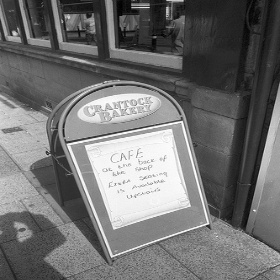 CRANTOCK
BAKERY
CAFE
at the back of
the shop
Extra Seating
is Available
Upstairs